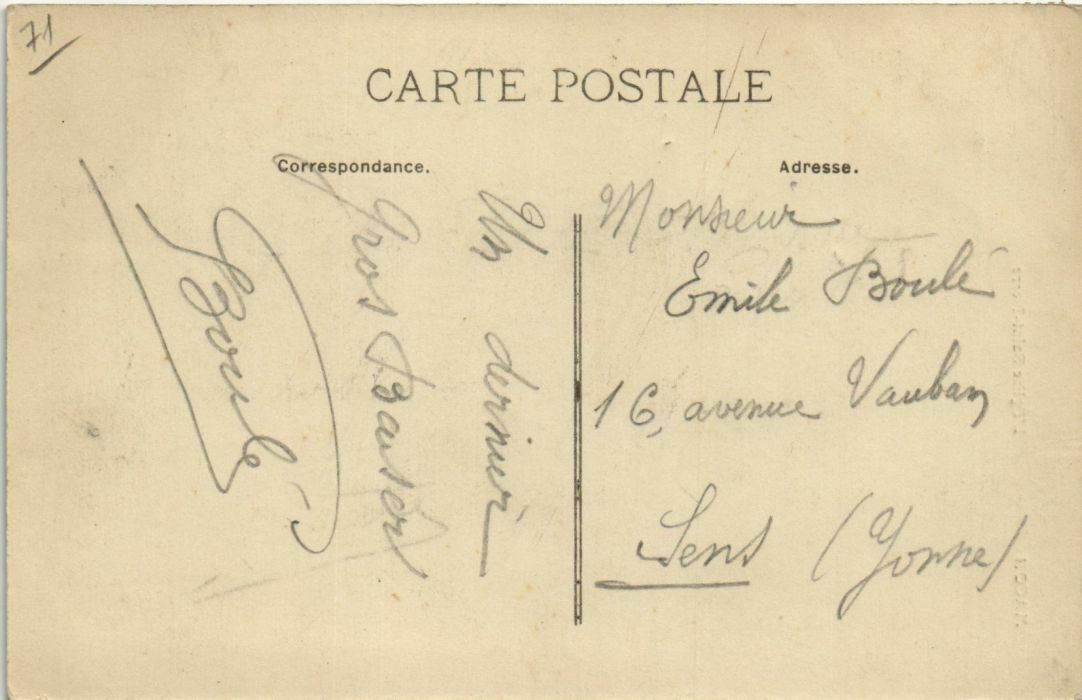 71
CARTE POSTALE
Correspondance.
Un dernier
Gros Baiser
Boulé
Adresse.
Monsieur
Emile Boulé
16, avenue Vauban
Sens (Yonne)
MACON